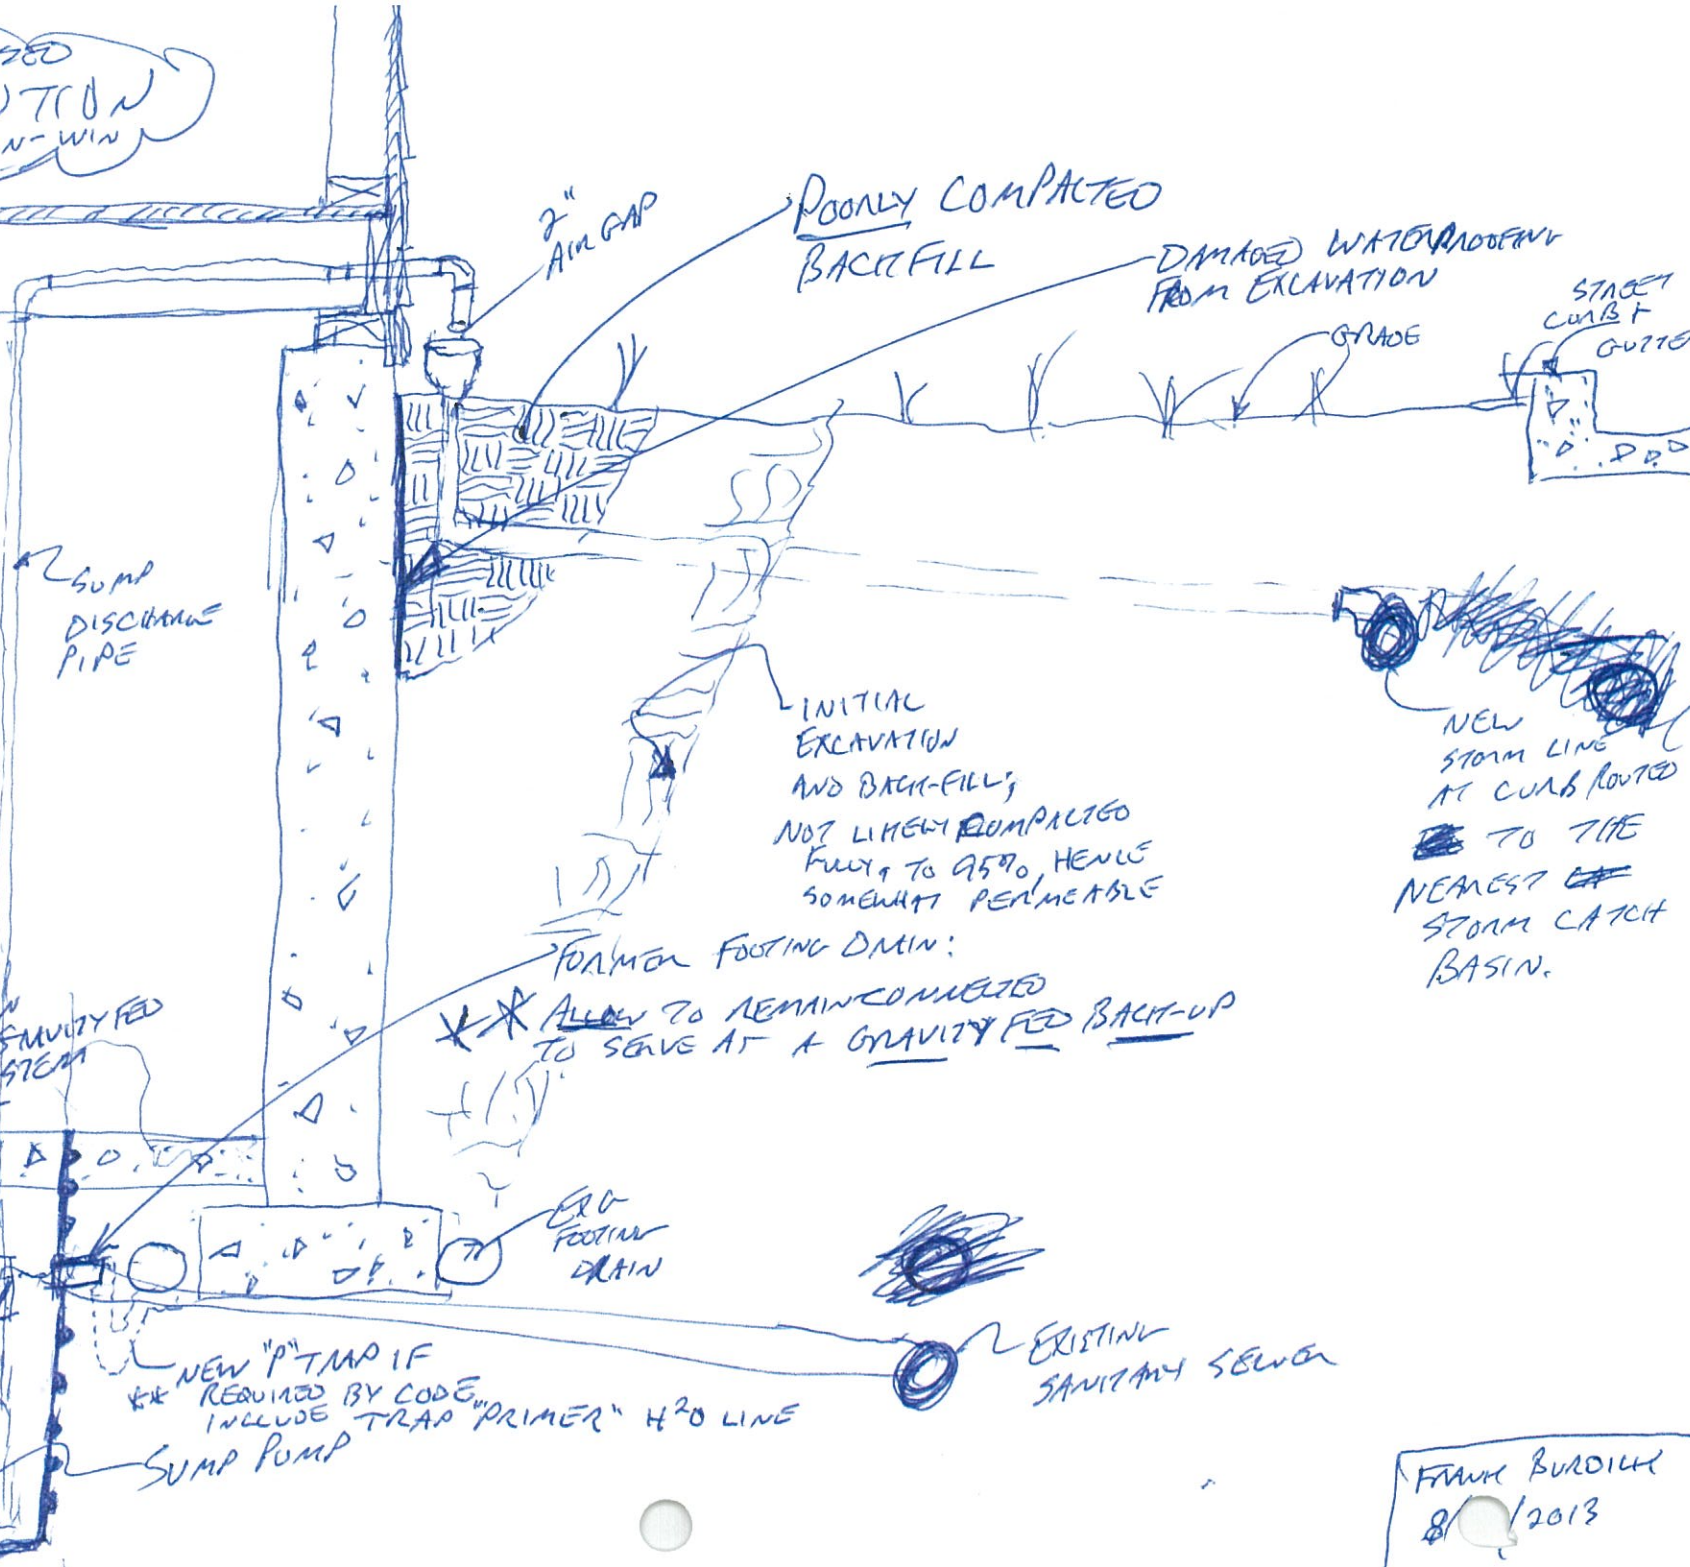 UTION
N-WIN
2"
AIR GAP
POORLY COMPACTED
BACKFILL
DAMAGED WATERPROOFING
FROM EXCAVATION
STREET
CURB +
GUTTE
GRADE
SUMP
DISCHARGE
PIPE
INITIAL
EXCAVATION
AND BACK-FILL;
NOT LIKELY COMPACTED
FULLY, TO 95%, HENCE
SOMEWHAT PERMEABLE
NEW
STORM LINE
AT CURB ROUTED
TO THE
NEAREST
STORM CATCH
BASIN.
FORMER FOOTING DRAIN:
** ALLOW TO REMAIN CONNECTED
TO SERVE AS A GRAVITY FED BACK-UP
GRAVITY FED
STEM
EXG
FOOTING
DRAIN
NEW "P" TRAP IF
** REQUIRED BY CODE
INCLUDE TRAP "PRIMER" H2O LINE
SUMP PUMP
EXISTING
SANITARY SEWER
FRANK BURDICK
8/ /2013